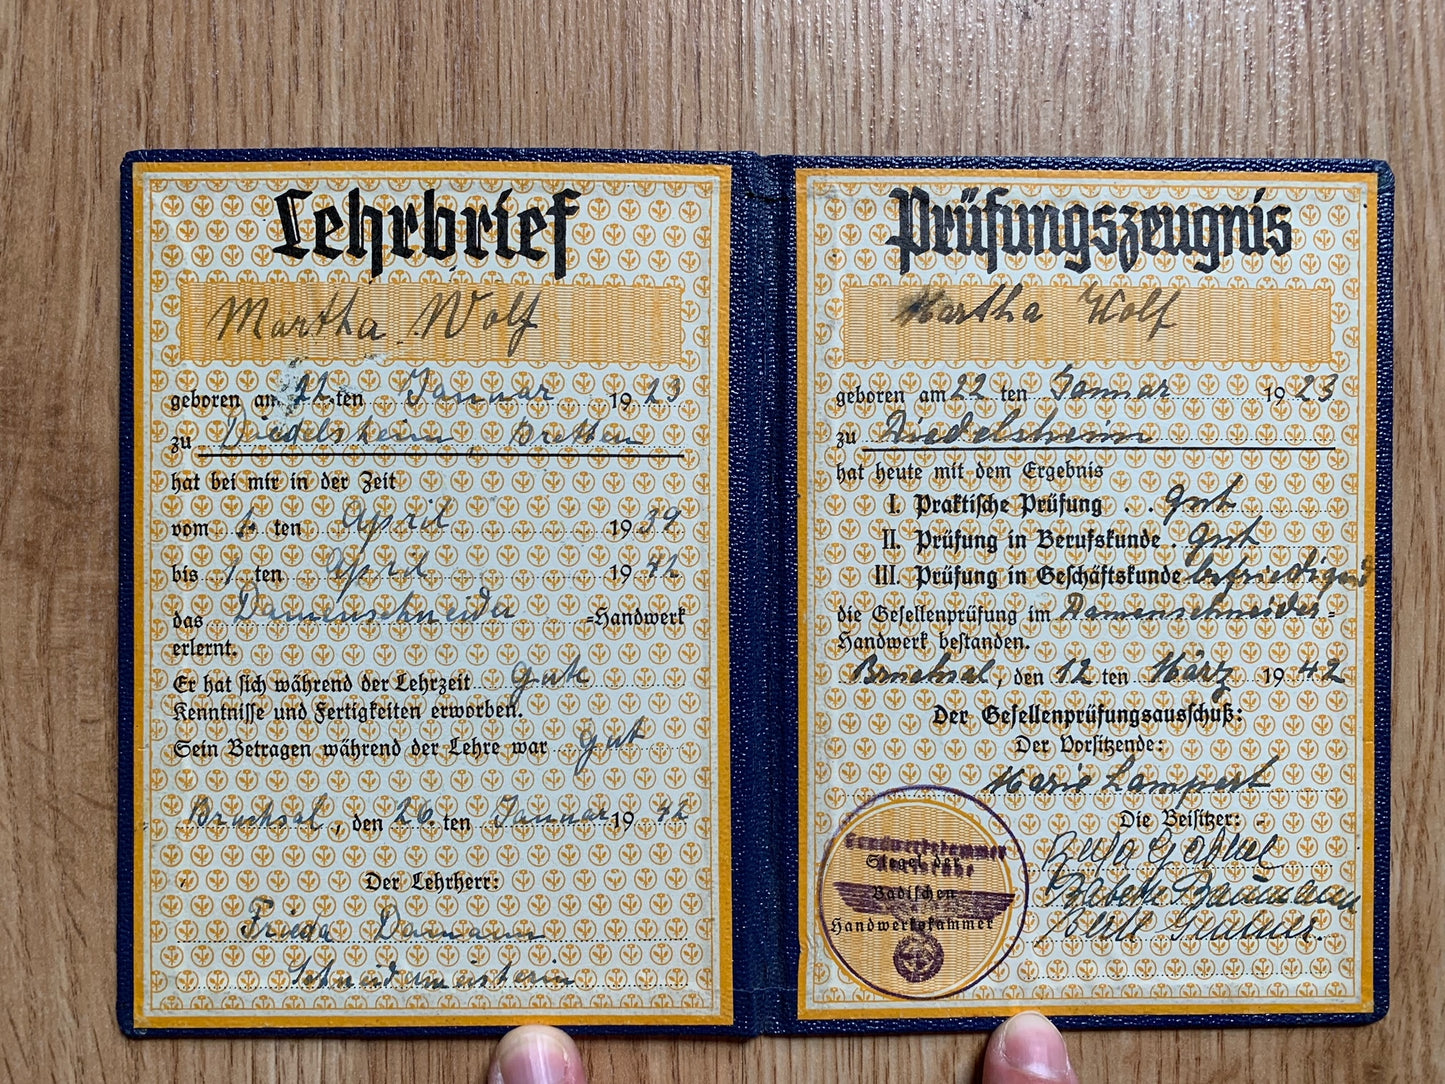 Lehrbrief
Martha Wolf
geboren am 22. ten Januar 1923
zu Diedelsheim, Bretten
hat bei mir in der Zeit
vom 1. ten April 1939
bis 1 ten April 1942
das Damenschneider =Handwerk
erlernt.
Er hat sich während der Lehrzeit gute
Kenntnisse und Fertigkeiten erworben.
Sein Betragen während der Lehre war gut
Bruchsal, den 26. ten Januar 1942
Der Lehrherr:
Frieda Damann
Schneidermeisterin
Prüfungszeugnis
Martha Wolf
geboren am 22 ten Januar 1923
zu Diedelsheim
hat heute mit dem Ergebnis
I. Praktische Prüfung . . gut
II. Prüfung in Berufskunde . gut
III. Prüfung in Geschäftskunde befriedigend
die Gesellenprüfung im Damenschneider=
Handwerk bestanden.
Bruchsal, den 12 ten März 1942
Der Gesellenprüfungsausschuß:
Der Vorsitzende:
Marie Lampert
Die Beisitzer:
Babette Baumann
Handwerkskammer
Siegel der
Karlsruhe
Badischen
Handwerkskammer